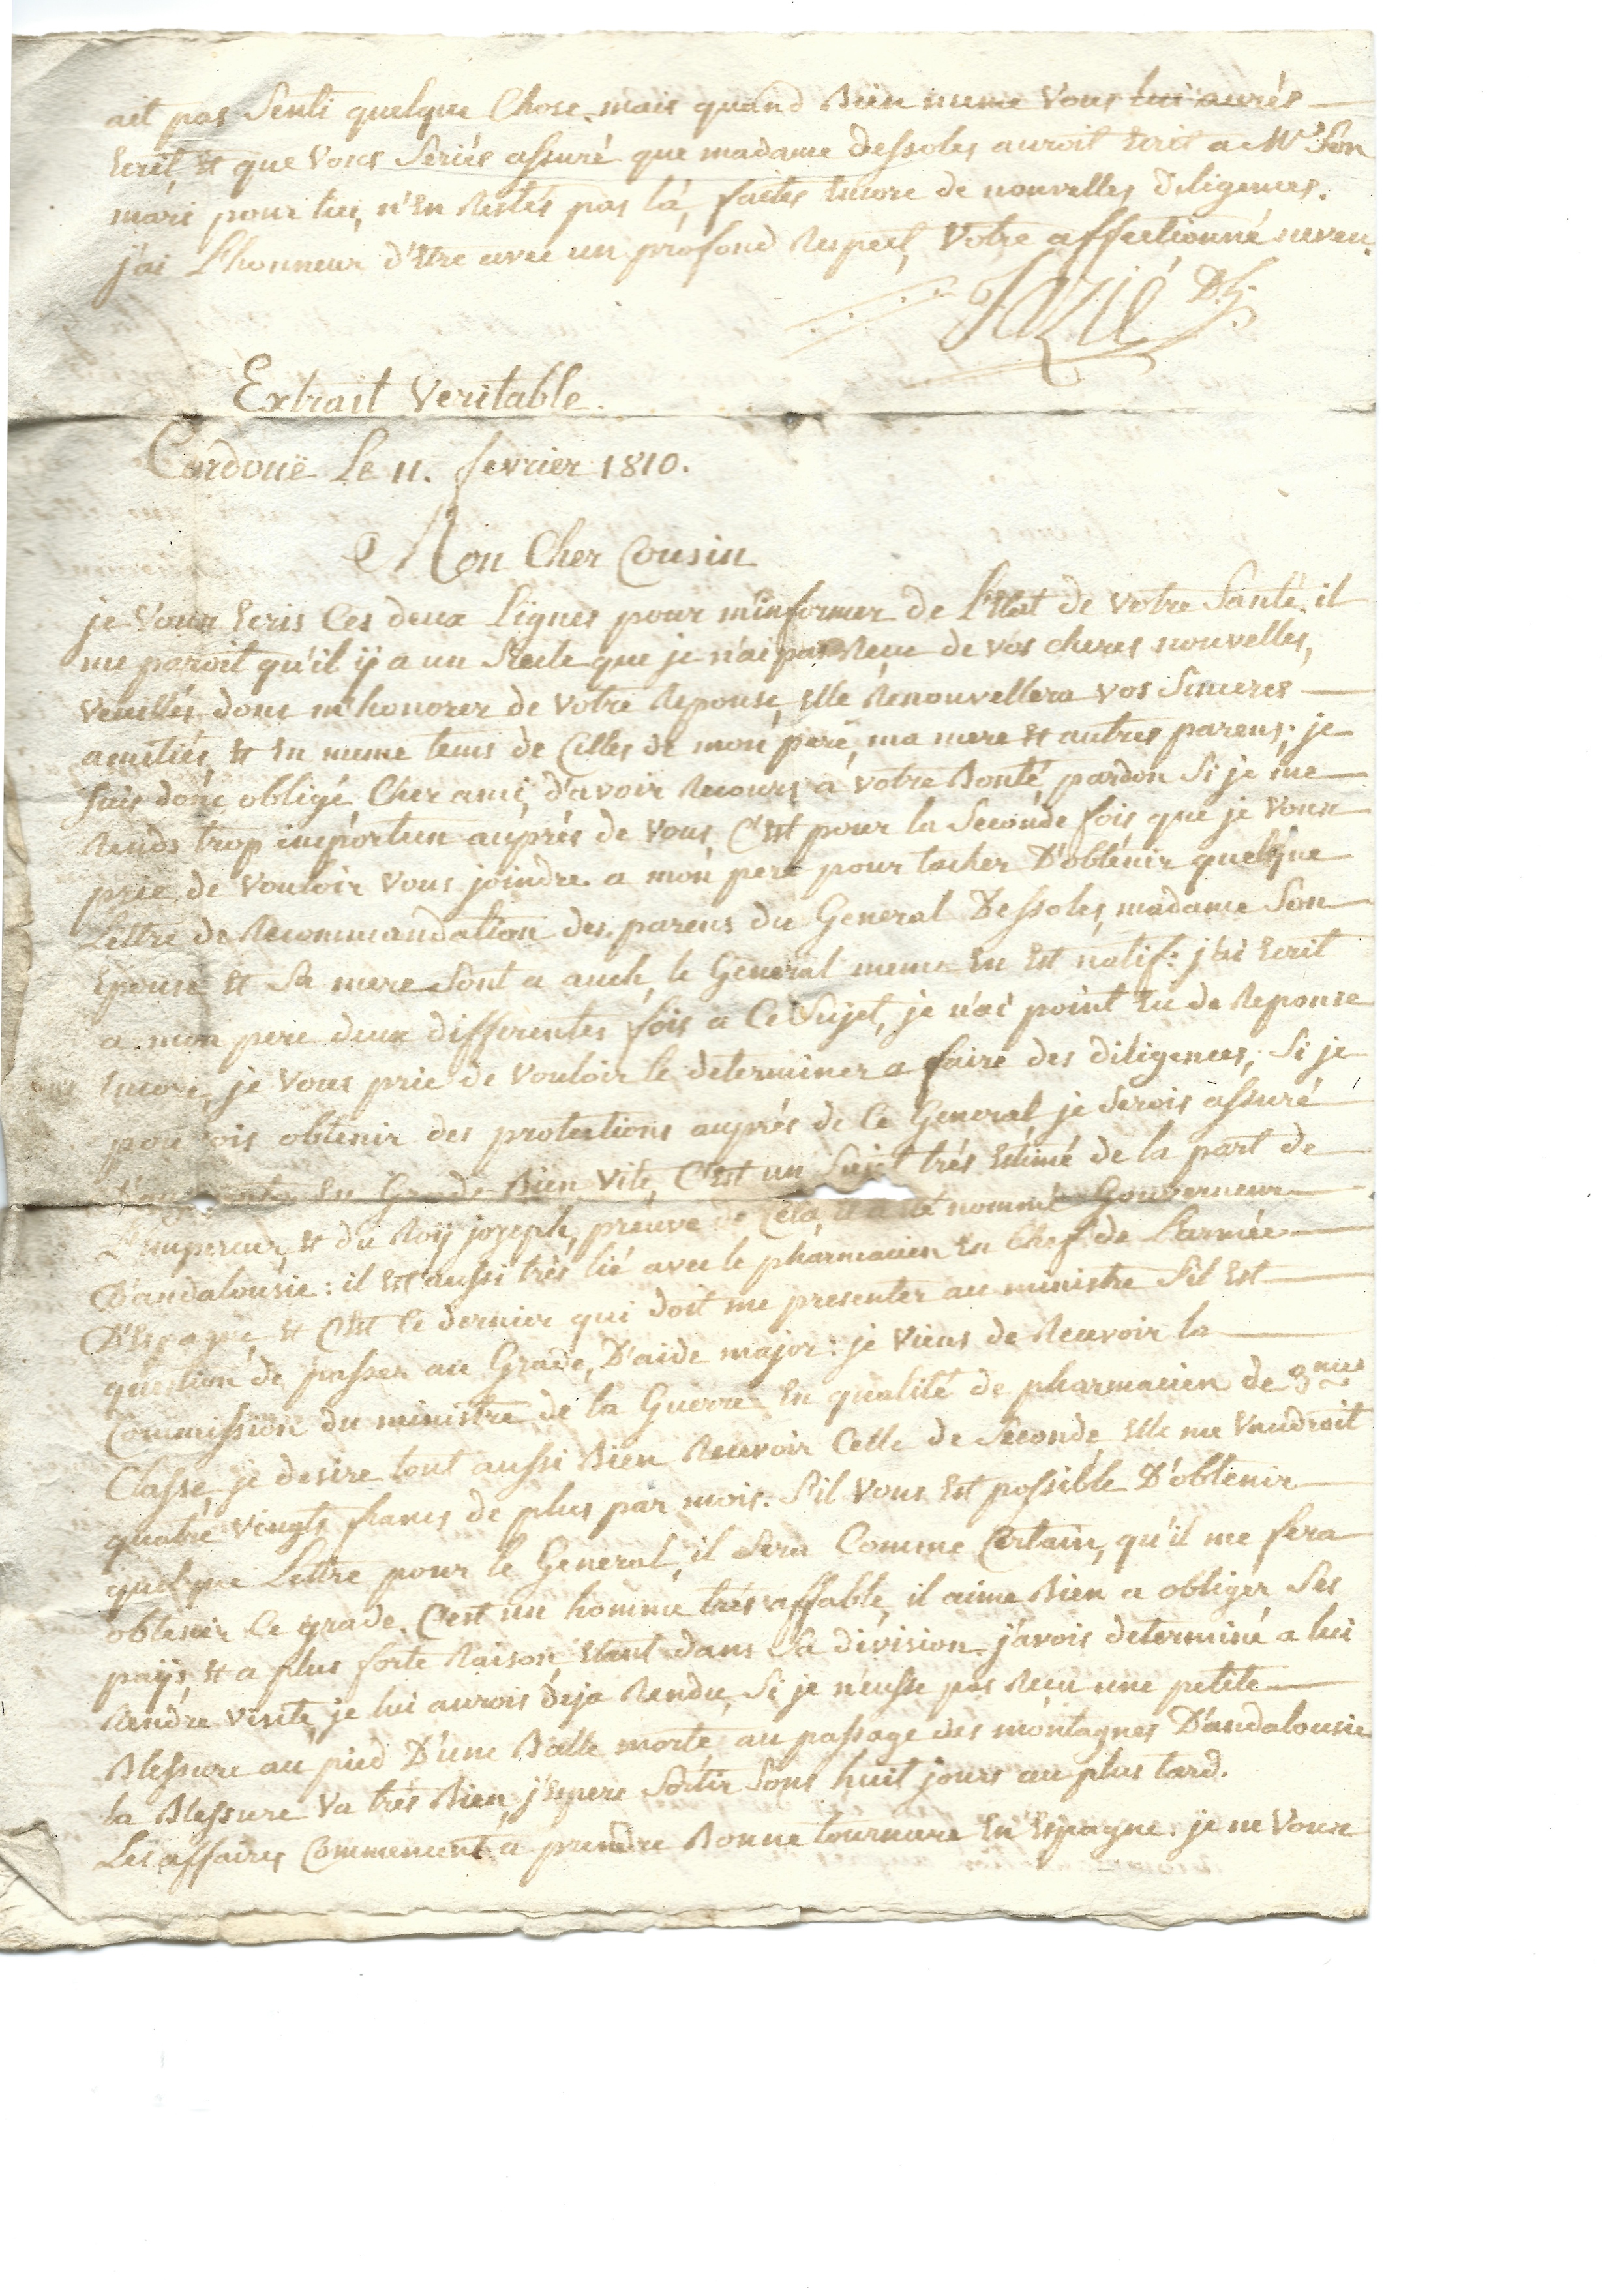 ait pas Senti quelque Chose. mais quand Bien meme Vous lui aurés
Ecrit, et que Vous Seriés assuré que madame dessoles auroit Ecrit a Mr Son
mari pour lui, n'En Restés pas là, faites Encore de nouvelles diligences.
j'ai L'honneur d'Etre avec un profond Respect, Votre affectionné neveu.
Fazié
Extrait Veritable.
Cordouë Le 11. fevrier 1810.
Mon Cher Cousin
je Vous Ecris Ces deux Lignes pour m'informer de L'Etat de Votre Santé. il
me paroit qu'il ÿ a un Siecle que je n'ai pas Reçue de vos cheres nouvelles,
Veuillés donc m'honorer de Votre Reponse, Elle Renouvellera vos Sinceres
amitiés, et En meme tems de Celles de mon pere, ma mere et autres parens; je
suis donc obligé, Cher ami, d'avoir Recours a votre Bonté, pardon Si je me
Rends trop importun auprés de Vous, C'Est pour la Seconde fois que je Vous
prie de Vouloir Vous joindre a mon pere pour tacher D'obtenir quelque
Lettre de Recommandation des parens du General Dessoles, madame Son
Epouse et Sa mere Sont a auch, le General meme En Est natif: j'ai Ecrit
a mon pere deux differentes fois a Ce Sujet, je n'ai point Eu de Reponse
Encore, je Vous prie de Vouloir le determiner a faire des diligences; Si je
pouvois obtenir des protections auprés de Ce General je Serois assuré
En Grade Bien Vite, C'Est un Sujet trés Estimé de la part de
L'Empereur, et du Roÿ joseph, preuve de Cela, il a été nommé Gouverneur
D'andalousie: il Est aussi très lié avec le pharmacien En Chef de L'armée
D'Espagne, et C'Est Ce dernier qui doit me presenter au ministre S'il Est
question de passer au Grade, D'aide major: je Viens de Recevoir la
Commission du ministre de la Guerre En qualité de pharmacien de 3me
Classe, je desire tout aussi Bien Recevoir Celle de Seconde, Elle me Vaudroit
quatre Vingts francs de plus par mois. S'il Vous Est possible D'obtenir
quelque Lettre pour le General, il Sera Comme Certain, qu'il me fera
obtenir Ce grade. C'est un homme trés affable, il aime Bien a obliger Ses
paÿs, et a plus forte Raison Etant dans Sa division. j'avois determiné a lui
Rendre visite, je lui aurois deja Rendu, Si je n'eusse pas Reçu une petite
Blessure au pied D'une Balle morte, au passage des montagnes D'andalousie
la Blessure Va trés Bien, j'Espere Sortir Sous huit jours au plus tard.
Les affaires Commencent a prendre Bonne tournure En Espagne. je ne Vous